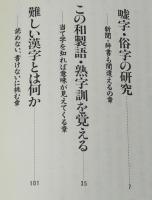 嘘字・俗字の研究
新聞・辞書も間違えるの章
7
この和製語・熟字訓を覚える
当て字を知れば意味が見えてくる章
35
難しい漢字とは何か
読めない、書けないに挑む章
101